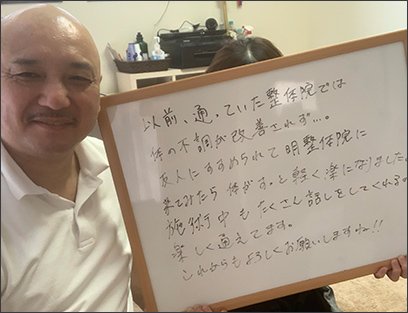 以前、通っていた整体院では
体の不調が改善されず…。
友人にすすめられて明整体院に
来てみたら 体がすっと軽く楽になりました。
施術中も たくさん話しをしてくれるので
楽しく通えてます。
これからもよろしくお願いしますね!!